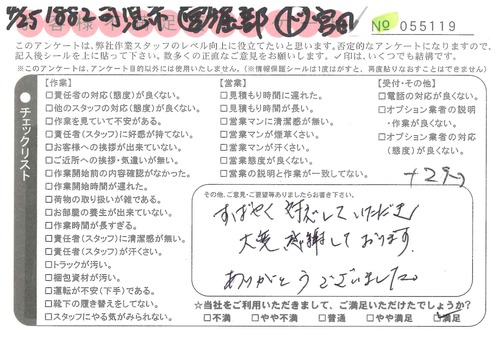 4/25 1882 可児市
№ 055119
このアンケートは、弊社作業スタッフのレベル向上に役立てたいと思います。否定的なアンケートになりますので、
記入後シールを上に貼って下さい。数多くの正直なご意見をお願いします。✓印は、いくつでも結構です。
※このアンケートは、アンケート目的以外には使用いたしません。（※情報保護シールは1度はがすと、再度貼りなおすことはできません）
チェックリスト
【作業】
□責任者の対応(態度)が良くない。
□他のスタッフの対応(態度)が良くない。
□作業を見ていて不安がある。
□責任者(スタッフ)に好感が持てない。
□お客様への挨拶が出来ていない。
□ご近所への挨拶・気遣いが無い。
□作業開始前の内容確認がなかった。
□作業開始時間が遅れた。
□荷物の取り扱いが雑である。
□お部屋の養生が出来ていない。
□作業時間が長すぎる。
□責任者(スタッフ)に清潔感が無い。
□責任者(スタッフ)が汗くさい。
□トラックが汚い。
□梱包資材が汚い。
□運転が不安(下手)である。
□靴下の履き替えをしてない。
□スタッフにやる気がみられない。
【営業】
□見積もり時間に遅れた。
□見積もり時間が長い。
□営業マンに清潔感が無い。
□営業マンが煙草くさい。
□営業マンが汗くさい。
□営業態度が良くない。
□営業の説明と作業が一致してない。
【受付・その他】
□電話の対応が良くない。
□オプション業者の説明
・作業が良くない。
□オプション業者の対応
(態度)が良くない。
+29
その他、ご意見・ご要望等ありましたらお書き下さい。
すばやく対応していただき
大変感謝しております。
ありがとうございました。
☆当社をご利用いただきまして、ご満足いただけたでしょうか？
□不満 □やや不満 □普通 □やや満足 □満足